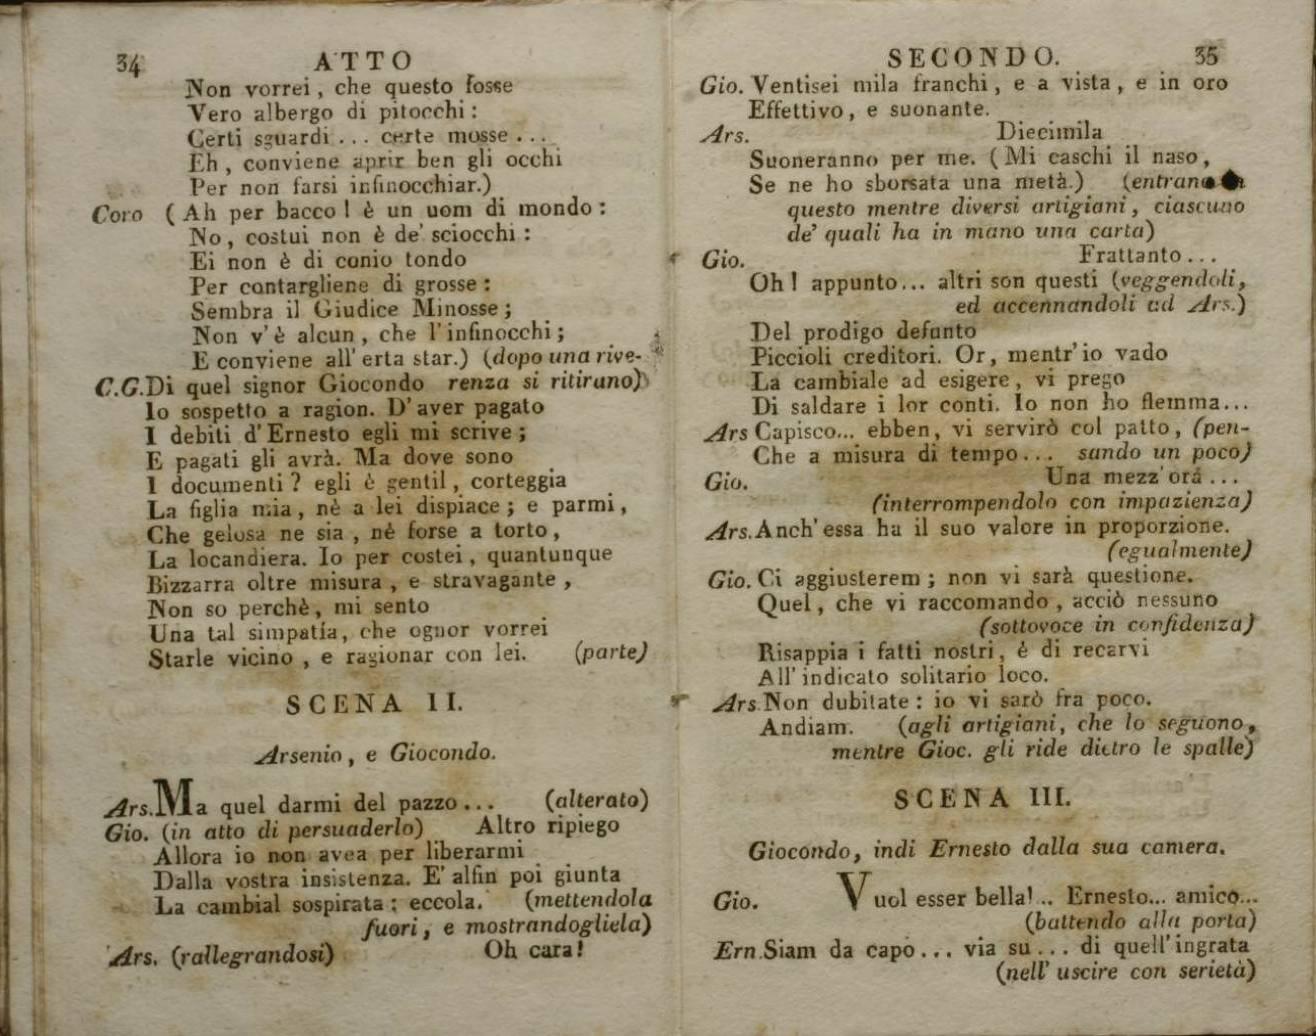 34 ATTO
Non vorrei, che questo fosse
Vero albergo di pitocchi:
Certi sguardi... certe mosse...
Eh, conviene aprir ben gli occhi
Per non farsi infinocchiar.)
Coro (Ah per bacco! è un uom di mondo:
No, costui non è de' sciocchi:
Ei non è di conio tondo
Per contargliene di grosse:
Sembra il Giudice Minosse;
Non v'è alcun, che l'infinocchi;
E conviene all'erta star.) (dopo una rive-
C.G. Di quel signor Giocondo renza si ritirano)
Io sospetto a ragion. D'aver pagato
I debiti d'Ernesto egli mi scrive;
E pagati gli avrà. Ma dove sono
I documenti? egli è gentil, corteggia
La figlia mia, nè a lei dispiace; e parmi,
Che gelosa ne sia, nè forse a torto,
La locandiera. Io per costei, quantunque
Bizzarra oltre misura, e stravagante,
Non so perchè, mi sento
Una tal simpatía, che ognor vorrei
Starle vicino, e ragionar con lei. (parte)
SCENA II.
Arsenio, e Giocondo.
Ars. Ma quel darmi del pazzo... (alterato)
Gio. (in atto di persuaderlo) Altro ripiego
Allora io non avea per liberarmi
Dalla vostra insistenza. E' alfin poi giunta
La cambial sospirata: eccola. (mettendola
fuori, e mostrandogliela)
Ars. (rallegrandosi) Oh cara!
SECONDO. 35
Gio. Ventisei mila franchi, e a vista, e in oro
Effettivo, e suonante.
Ars. Diecimila
Suoneranno per me. (Mi caschi il naso,
Se ne ho sborsata una metà.) (entrano in
questo mentre diversi artigiani, ciascuno
de' quali ha in mano una carta)
Gio. Frattanto...
Oh! appunto... altri son questi (veggendoli,
ed accennandoli ad Ars.)
Del prodigo defunto
Piccioli creditori. Or, mentr'io vado
La cambiale ad esigere, vi prego
Di saldare i lor conti. Io non ho flemma...
Ars Capisco... ebben, vi servirò col patto, (pen-
Che a misura di tempo... sando un poco)
Gio. Una mezz'ora...
(interrompendolo con impazienza)
Ars. Anch'essa ha il suo valore in proporzione.
(egualmente)
Gio. Ci aggiusterem; non vi sarà questione.
Quel, che vi raccomando, acciò nessuno
(sottovoce in confidenza)
Risappia i fatti nostri, é di recarvi
All'indicato solitario loco.
Ars. Non dubitate: io vi sarò fra poco.
Andiam. (agli artigiani, che lo seguono,
mentre Gioc. gli ride dietro le spalle)
SCENA III.
Giocondo, indi Ernesto dalla sua camera.
Gio. Vuol esser bella!.. Ernesto... amico...
(battendo alla porta)
Ern. Siam da capo... via su... di quell'ingrata
(nell'uscire con serietà)